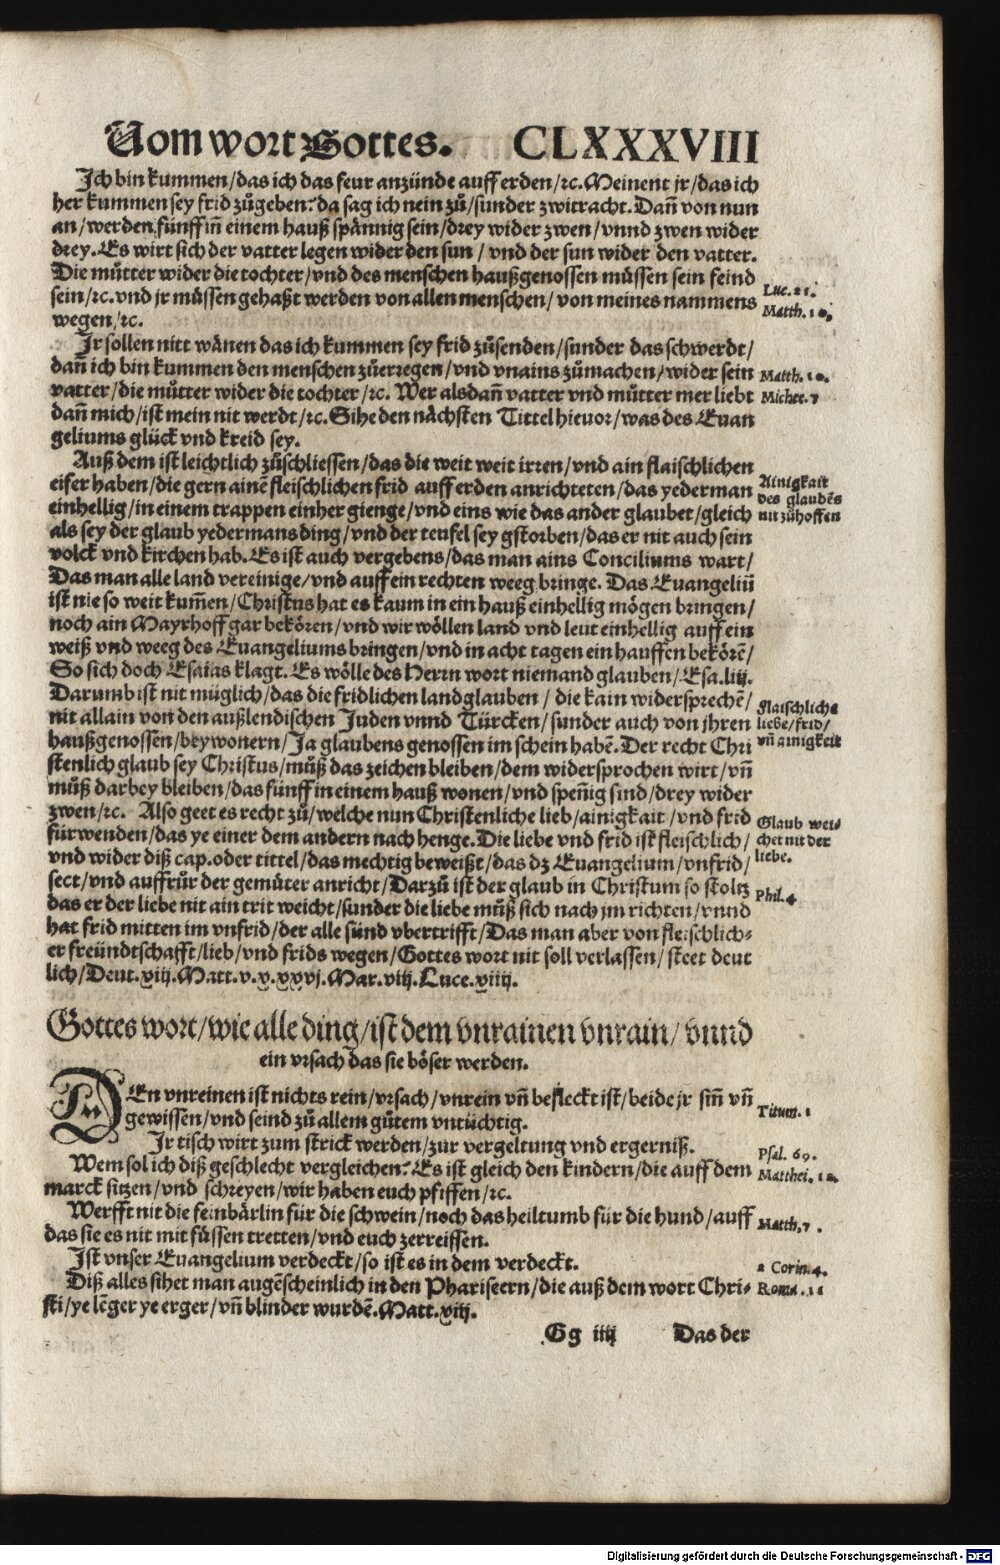 Vom wort Gottes. CLXXXVIII
Ich bin kummen/das ich das feur anzünde auff erden/ꝛc. Meinent jr/das ich
her kummen sey frid zůgeben? da sag ich nein zů/sunder zwitracht. Dañ von nun
an/werden fünff iñ einem hauß spännig sein/drey wider zwen/vnnd zwen wider
drey. Es wirt sich der vatter legen wider den sun / vnd der sun wider den vatter.
Die můtter wider die tochter/vnd des menschen haußgenossen müssen sein feind
sein/ꝛc. vnd jr müssen gehaßt werden von allen menschen/von meines nammens
wegen/ꝛc.
Luc. 21.
Matth. 10.
Ir sollen nitt wänen das ich kummen sey frid zůsenden/sunder das schwerdt/
dañ ich bin kummen den menschen zůerregen/vnd vnains zůmachen/wider sein
vatter/die můtter wider die tochter/ꝛc. Wer alsdañ vatter vnd můtter mer liebt
dañ mich/ist mein nit werdt/ꝛc. Sihe den nächsten Tittel hieuor/was des Euan
geliums glück vnd kreid sey.
Matth. 10.
Michee. 7
Auß dem ist leichtlich zůschliessen/das die weit weit irren/vnd ain flaischlichen
eifer haben/die gern ainẽ fleischlichen frid auff erden anrichteten/das yederman
einhellig/in einem trappen einher gienge/vnd eins wie das ander glaubet/gleich
als sey der glaub yedermans ding/vnd der teufel sey gstorben/das er nit auch sein
volck vnd kirchen hab. Es ist auch vergebens/das man ains Conciliums wart/
Das man alle land vereinige/vnd auff ein rechten weeg bringe. Das Euangeliũ
ist nie so weit kum̃en/Christus hat es kaum in ein hauß einhellig mögen bringen/
noch ain Mayrhoff gar bekören/vnd wir wöllen land vnd leut einhellig auff ein
weiß vnd weeg des Euangeliums bringen/vnd in acht tagen ein hauffen bekörẽ/
So sich doch Esaias klagt. Es wölle des Herrn wort niemand glauben/Esa. liij.
Darumb ist nit müglich/das die fridlichen land glauben / die kain widersprechẽ/
nit allain von den außlendischen Juden vnnd Türcken/sunder auch von jhren
haußgenossen/beywonern/Ja glaubens genossen im schein habẽ. Der recht Chri
stenlich glaub sey Christus/můß das zeichen bleiben/dem widersprochen wirt/vñ
můß darbey bleiben/das fünff in einem hauß wonen/vnd speñig sind/drey wider
zwen/ꝛc. Also geet es recht zů/welche nun Christenliche lieb/ainigkait/vnd frid
fürwenden/das ye einer dem andern nach henge. Die liebe vnd frid ist fleischlich/
vnd wider diß cap. oder tittel/das mechtig beweißt/das dz Euangelium/vnfrid/
sect/vnd auffrůr der gemüter anricht/Darzů ist der glaub in Christum so stoltz
das er der liebe nit ain trit weicht/sunder die liebe můß sich nach jm richten/vnnd
hat frid mitten im vnfrid/der alle sünd vbertrifft/Das man aber von fleischlich-
er freündtschafft/lieb/vnd frids wegen/Gottes wort nit soll verlassen/steet deut
lich/Deut. xiij. Matt. v. x. xxvj. Mar. viij. Luce. xiiij.
Ainigkait
des glaubẽs
nit zůhoffen
Flaischliche
liebe/frid/
vñ ainigkeit
Glaub wei-
chet nit der
liebe.
Phil. 4
Gottes wort/wie alle ding/ist dem vnrainen vnrain/vnnd
ein vrsach das sie böser werden.
DEn vnreinen ist nichts rein/vrsach/vnrein vñ befleckt ist/beide jr siñ vñ
gewissen/vnd seind zů allem gůtem vntüchtig.
Titum. 1
Ir tisch wirt zum strick werden/zur vergeltung vnd ergerniß.
Psal. 69.
Wem sol ich diß geschlecht vergleichen? Es ist gleich den kindern/die auff dem
marck sitzen/vnd schreyen/wir haben euch pfiffen/ꝛc.
Werfft nit die feinbärlin für die schwein/noch das heiltumb für die hund/auff
das sie es nit mit füssen tretten/vnd euch zerreissen.
Matth. 7.
Ist vnser Euangelium verdeckt/so ist es in dem verdeckt.
2 Corin. 4.
Diß alles sihet man augẽscheinlich in den Phariseern/die auß dem wort Chri-
sti/ye lẽger ye erger/vñ blinder wurdẽ. Matt. xiij.
Roma. 11
Gg iiij Das der
Digitalisierung gefördert durch die Deutsche Forschungsgemeinschaft - DFG